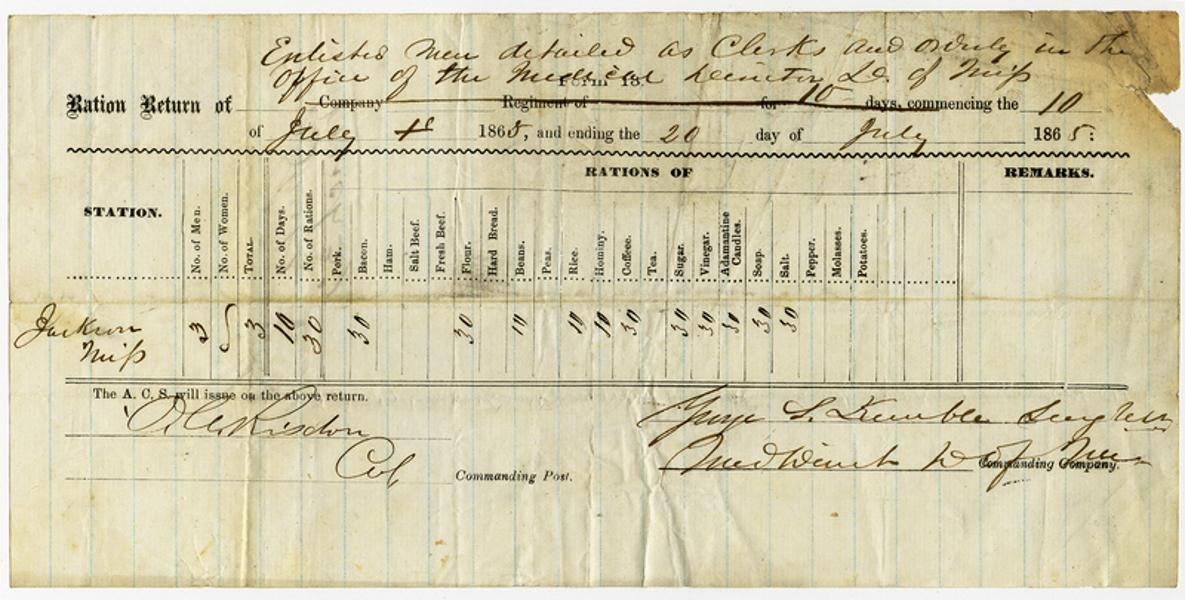 Enlisted Men detailed as Clerks and orderly in the
Office of the Medical Director De. of Miss
Form 13.
Ration Return of Company Regiment of for 10 days, commencing the 10
of July 1865, and ending the 20 day of July 1865:
RATIONS OF REMARKS.
STATION. No. of Men. No. of Women. TOTAL. No. of Days. No. of Rations. Pork. Bacon. Ham. Salt Beef. Fresh Beef. Flour. Hard Bread. Beans. Peas. Rice. Hominy. Coffee. Tea. Sugar. Vinegar. Adamantine Candles. Soap. Salt. Pepper. Molasses. Potatoes.
Jackson 3 3 10 30 30 30 10 10 10 30 30 30 30 30 30
Miss
The A. C. S. will issue on the above return.
Risdon George S. Kemble Surg
Col Commanding Post. Med Direct D of Miss Commanding Company.